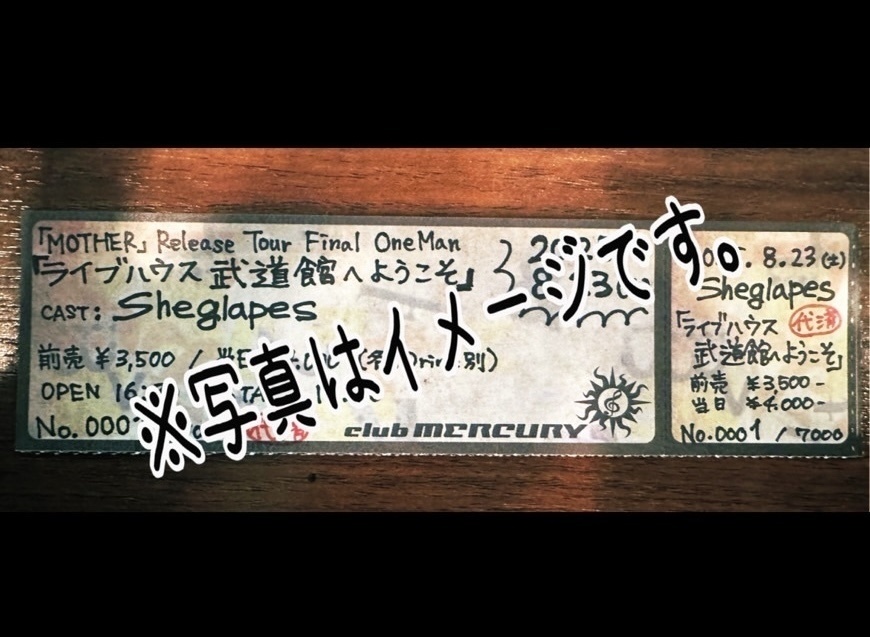 「MOTHER」Release Tour Final OneMan
「ライブハウス 武道館へようこそ」
CAST: Sheglapes
前売 ¥3,500 /
OPEN
club MERCURY
※写真はイメージです。
8.23(土)
Sheglapes
「ライブハウス
代済
武道館へようこそ」
前売 ¥3,500-
当日 ¥4,000-
No.0001 / 7000